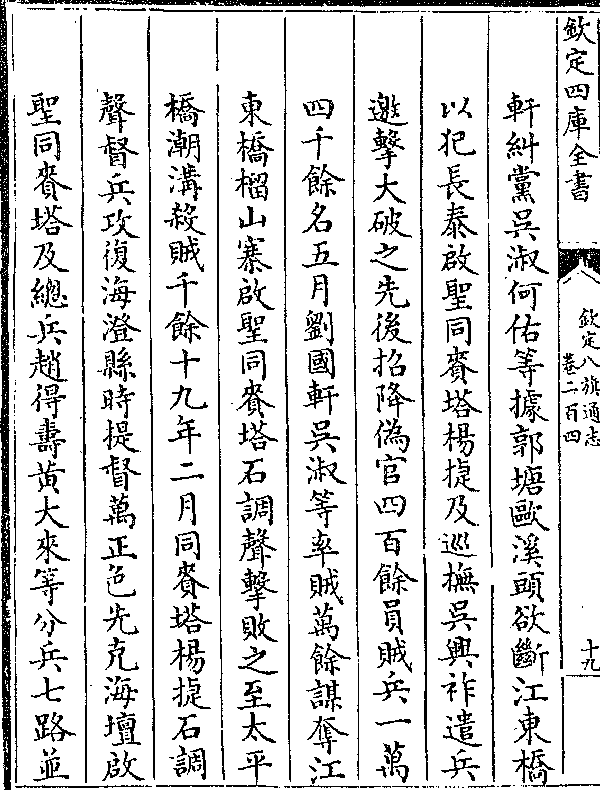 欽定四庫全書
欽定八旗通志
卷二百四
十九
軒糾黨吳淑何佑等據郭塘歐溪頭欲斷江東橋
以犯長泰啟聖同賚塔楊捷及巡撫吳興祚遣兵
邀擊大破之先後招降偽官四百餘員賊兵一萬
四千餘名五月劉國軒吳淑等率賊萬餘謀奪江
東橋榴山寨啟聖同賚塔石調聲擊敗之至太平
橋潮溝殺賊千餘十九年二月同賚塔楊捷石調
聲督兵攻復海澄縣時提督萬正色先克海壇啟
聖同賚塔及總兵趙得壽黃大來等分兵七路並